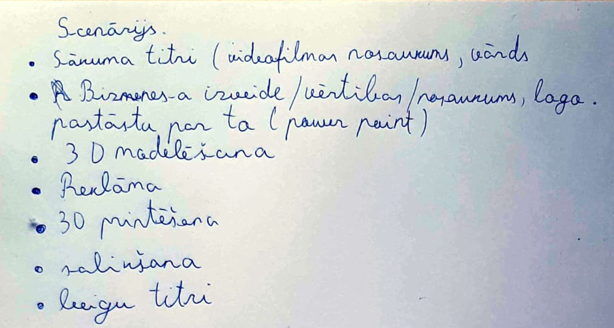 Scenārijs.
• Sākuma titri (videofilmas nosaukums, vārds
• Biznenes-a izveide/vērtības/nosaukums, logo.
pastāstu par to (power point)
• 3D modelēšana
• Reklāma
• 3D printēšana
• salinšana
• beigu titri